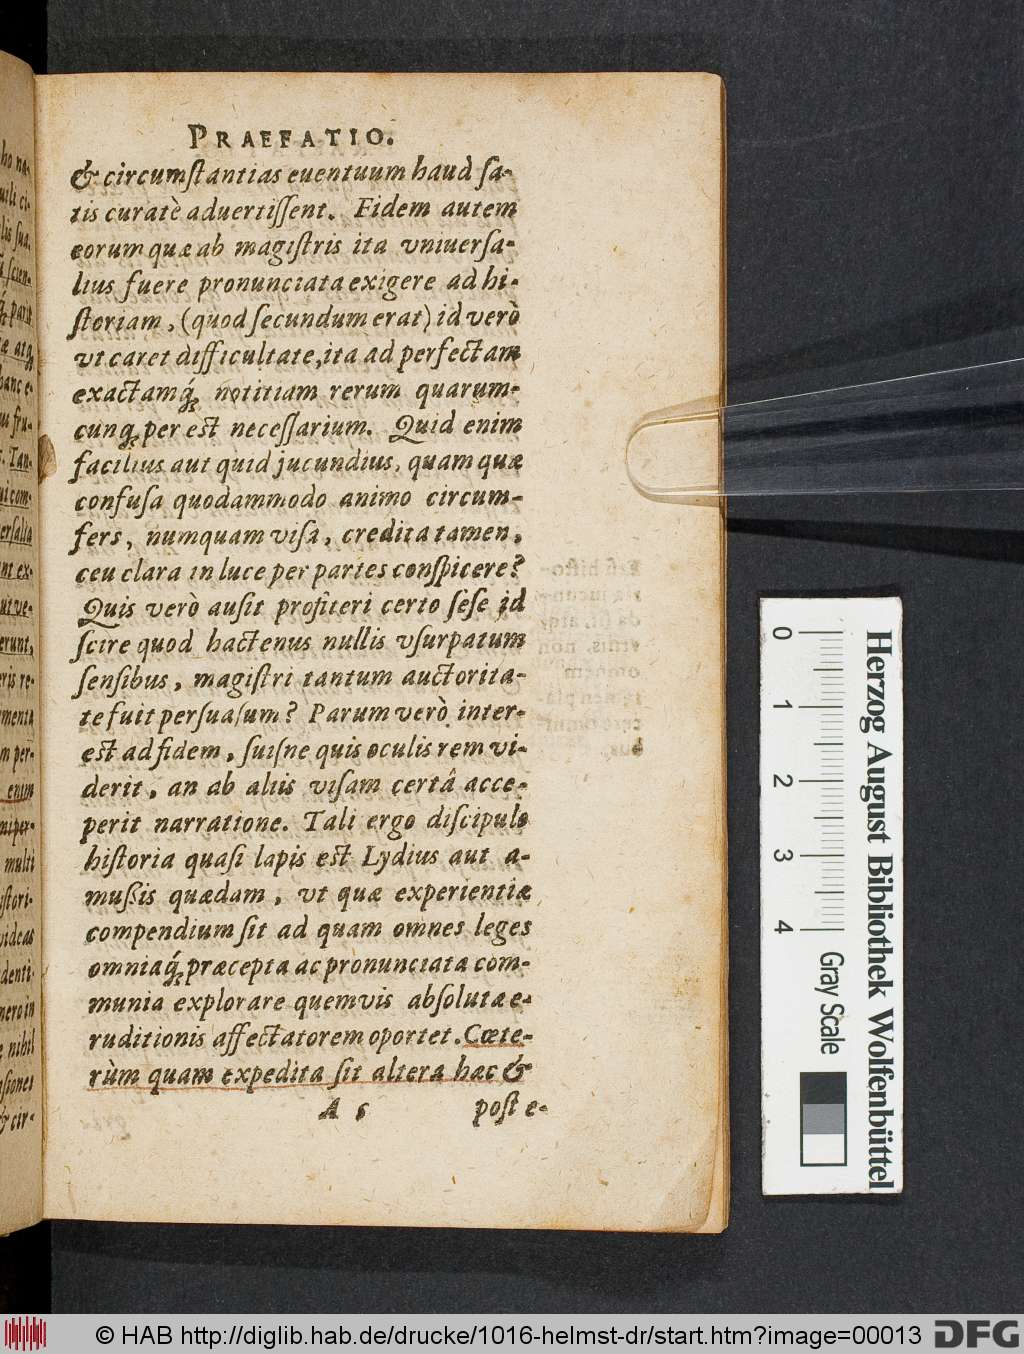 ho na-
uili ci-
lis sua,
ſcien-
parit
æ atq́;
hanc e-
fru-
Tan-
ut com-
erſalia
nt ex-
ut ve-
erunt,
ris re-
menta
m per-
enim
miper-
multi
iſtori-
videas
denti-
nero in
nihil
aſiones
& cir-
PRAEFATIO.
& circumſtantias euentuum haud ſa-
tis curatè aduertiſſent. Fidem autem
eorum quæ ab magiſtris ita vniuerſa-
lius fuere pronunciata exigere ad hi-
ſtoriam, (quod ſecundum erat) id verò
vt caret difficultate, ita ad perfectam
exactamq́; notitiam rerum quarum-
cunq; per eſt neceſſarium. Quid enim
facilius aut quid jucundius, quam quæ
confuſa quodammodo animo circum-
fers, numquam viſa, credita tamen,
ceu clara in luce per partes conſpicere?
Quis verò auſit profiteri certo ſeſe id
ſcire quod hactenus nullis vſurpatum
ſenſibus, magiſtri tantum auctorita-
te fuit perſuaſum? Parum verò inter-
eſt ad fidem, ſuiſne quis oculis rem vi-
derit, an ab aliis viſam certâ acce-
perit narratione. Tali ergo diſcipulo
hiſtoria quaſi lapis eſt Lydius aut a-
mußis quædam, vt quæ experientiæ
compendium ſit ad quam omnes leges
omniaq́; præcepta ac pronunciata com-
munia explorare quemvis abſolutæ e-
ruditionis affectatorem oportet. Cœte-
rùm quam expedita ſit altera hac &
A 5 poſt e-
0 1 2 3 4
Gray Scale
Herzog August Bibliothek Wolfenbüttel
© HAB http://diglib.hab.de/drucke/1016-helmst-dr/start.htm?image=00013
DFG